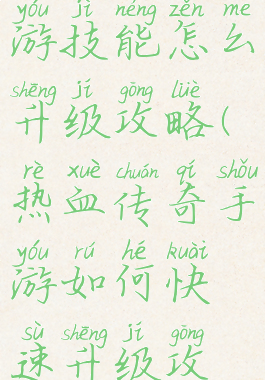 yóu jì néng zěn me
游技能怎么
shēng jí gōng lüè
升级攻略(
rè xuè chuán qí shǒu
热血传奇手
yóu rú hé kuài
游如何快
sù shēng jí gōng
速升级攻